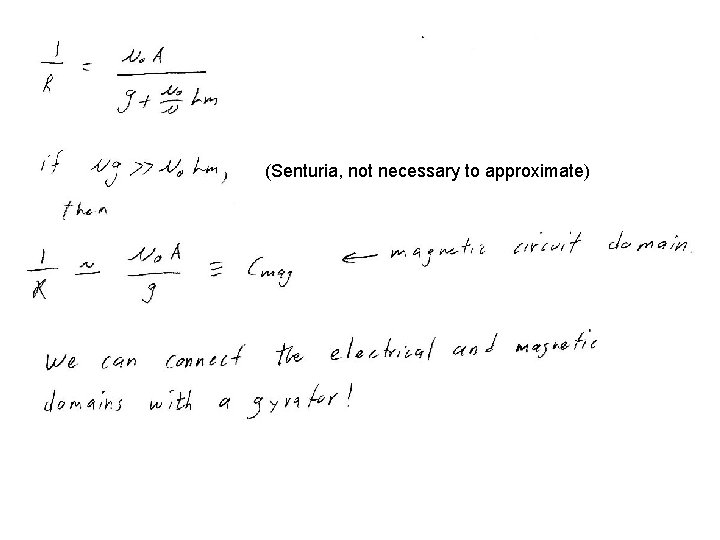 1/R = μ₀A / (g + μ₀/μ Lm)
if μg >> μ₀ Lm, (Senturia, not necessary to approximate)
then
1/R ≈ μ₀A / g ≡ Cmag ← magnetic circuit domain.
We can connect the electrical and magnetic
domains with a gyrator!